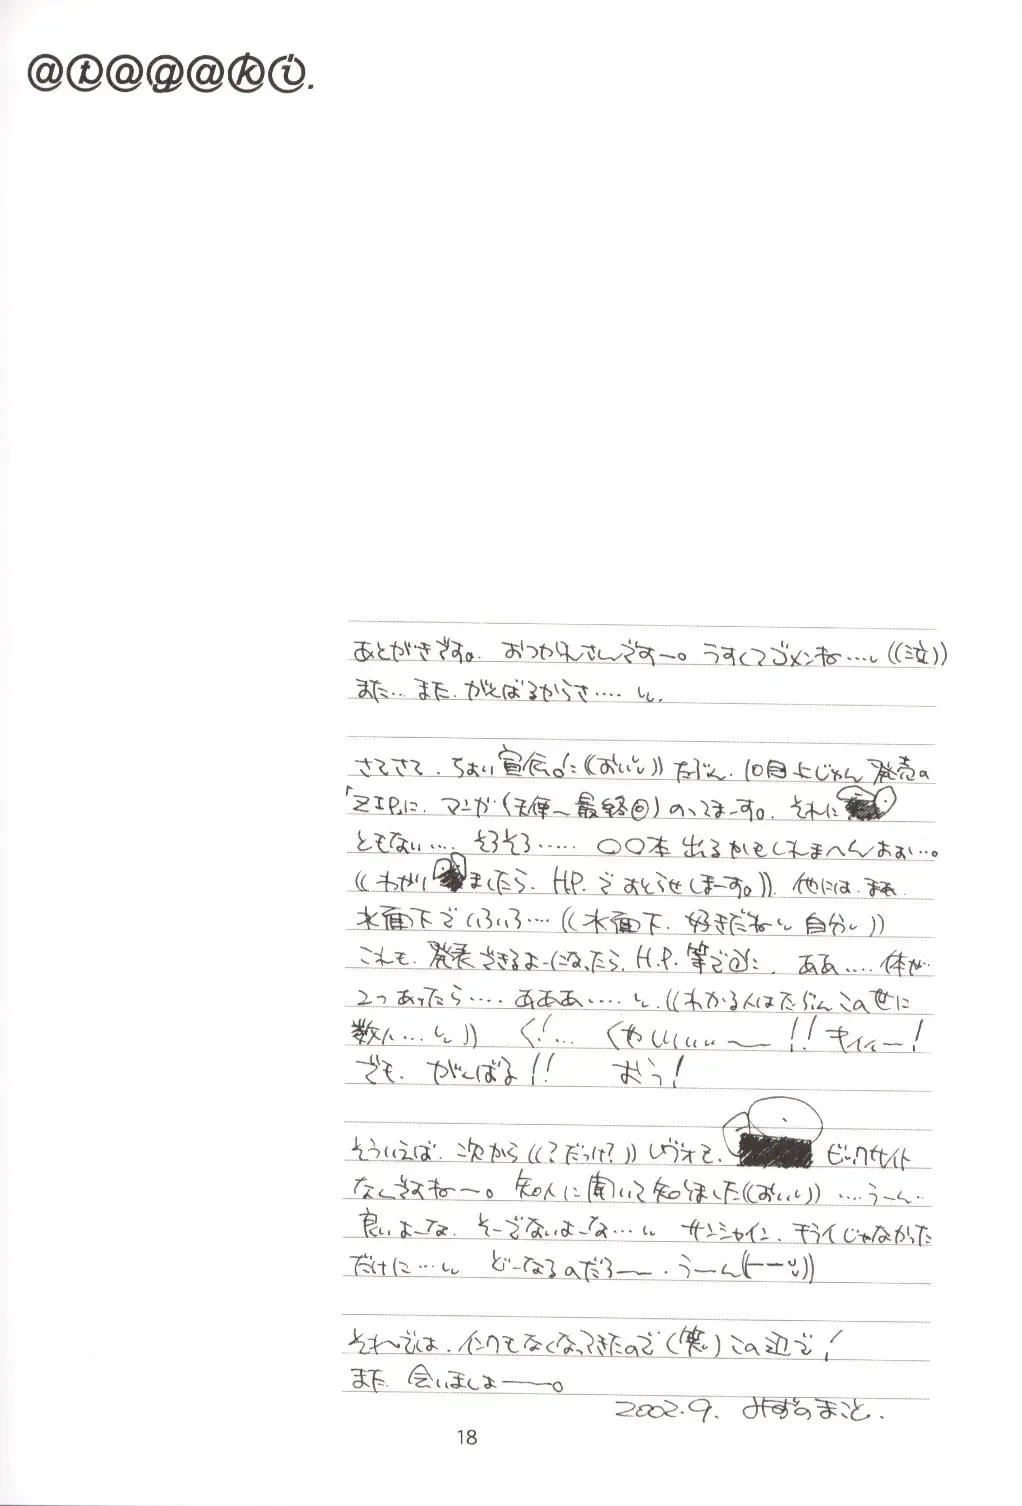 @t@g@ki.
あとがきです。おつかれさんですー。うすくてゴメンね…。((泣))
また… また、がんばるからさ……。
さてさて、ちょい宣伝。に((おいい))たぶん、10月上じゅん発売の
「ZIP」に、マンガ(天使〜最終回)のってまーす。それに
ともない…、そろそろ…… 〇〇本 出るかもしれまへんおぉ…。
((わかり ましたら、H.P.でおしらせしまーす。))、他には、まぁ、
水面下でいろいろ…((水面下、好きだねい 自分い))
これも、発表できるよーになったら、H.P.等で に、ああ…、体が
2つあったら…… あああ……い、((わかる人はたぶんこの世に
数人…い)) く!… くやしいぃぃ〜!! キィィー!
でも、がんばる!! おう!
そういえば、次から((?だっけ?))レヴォって、 ビックサイト
なんですよねー。知人に聞いて知りました((おいい)) …うーん…
良いよーな、そーでないよーな…い サンシャイン、キライじゃなかった
だけに…い どーなるのだろー、うーん
それでは、インクもなくなってきたので(笑)この辺で!
また、会いましょーー。
2002.9. みずのまこと.
18